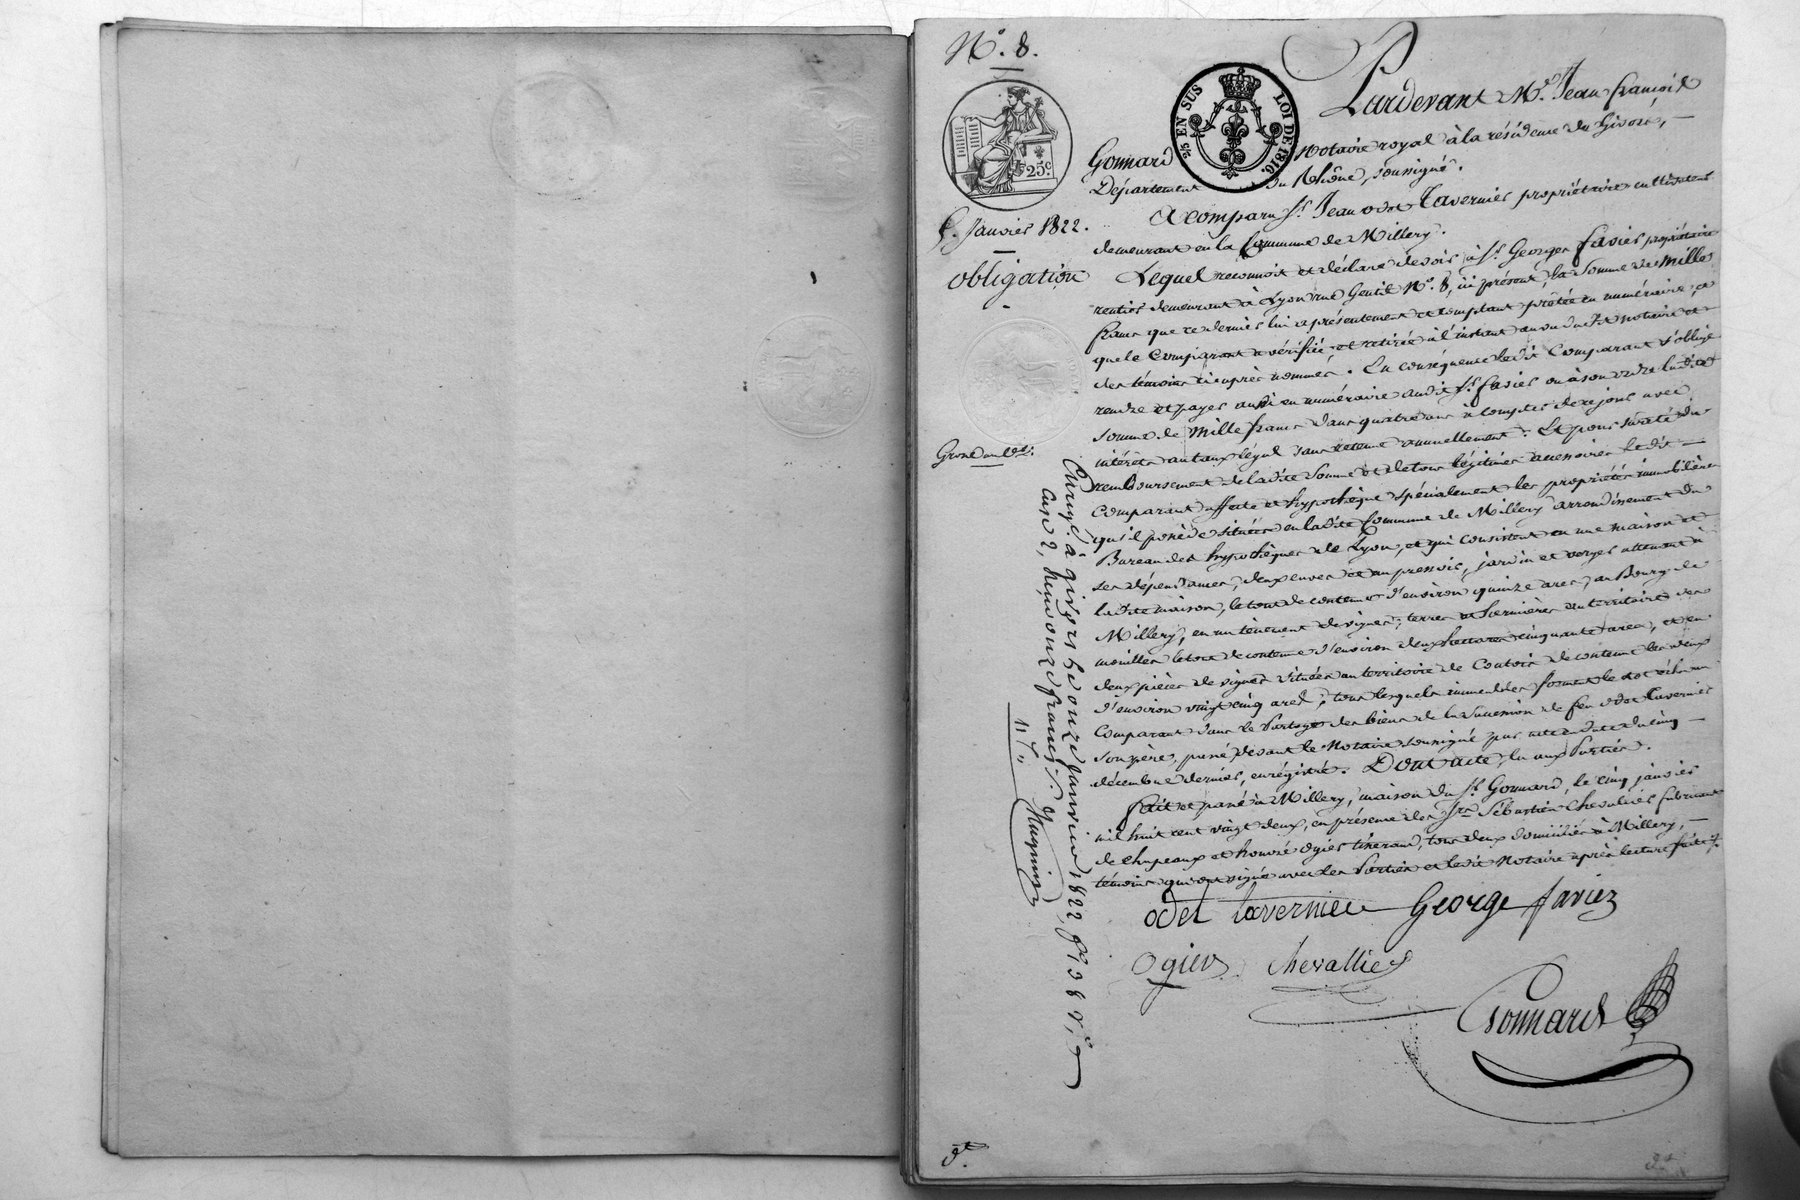 N.º 8.
25 c.
2/5 EN SUS LOI DE 1816.
Pardevant M.e Jean françois
Gonnard notaire royal à la résidence de Givors,
Département du Rhône, soussigné.
5. Janvier 1822.
obligation
Grosse
A comparu S.r Jean odet Tavernier propriétaire cultivateur
demeurant en la Commune de Millery.
Lequel reconnoit et déclare devoir à S.r George favier propriétaire
rentier demeurant à Lyon rue Gentil N.º 8, ici présent, la Somme de Mille
francs que ce dernier lui a présentement et comptant prêtée en numéraire, et
que le Comparant a vérifiée et retirée à l'instant au vu du dit notaire et
des témoins ci après nommés. En conséquence le dit Comparant s'oblige
rendre et payer aussi en numéraire audit S.r favier ou à son ordre ladite
somme de Mille francs dans quatre ans à compter de ce jour avec
intérêts au taux légal sans retenue annuellement. Et pour sureté du
remboursement de ladite Somme et de tous légitimes accessoires le dit
Comparant affecte et hypothèque spécialement les propriétés immobilières
qu'il possède situées en ladite Commune de Millery arrondissement du
Bureau des hypothèques de Lyon, et qui consistent en une maison et
ses dépendances, deux cuves et un pressoir, jardin et verger attenant à
ladite maison, le tout de contenue d'environ quinze ares, au Bourg de
Millery, en un tènement de vignes, terres et hermières au territoire des
mouilles le tout de contenue d'environ deux hectares cinquante ares, et en
deux pièces de vignes situées au territoire de Coutoir de contenue les deux
d'environ vingt cinq ares; tous lesquels immeubles forment le lot échu au
Comparant dans le Partage des biens de la Succession de feu odet Tavernier
son père, passé devant le Notaire soussigné par acte en date du cinq
décembre dernier, enrégistré. Dont acte, lu aux Parties.
fait et passé à Millery, maison du S.r Gonnard, le cinq janvier
mil huit cent vingt deux, en présence des S.rs Sébastien Chevalier fabricant
de chapeaux et honoré Ogier tisserand, tous deux domiciliés à Millery,
témoins qui ont signé avec les Parties et le dit Notaire après lecture faite.
odet tavernier George favier
Ogier Chevallier
Gonnard
à givors le onze Janvier 1822, f.º 38 v.º
case 2, Reçu onze francs
11 f.